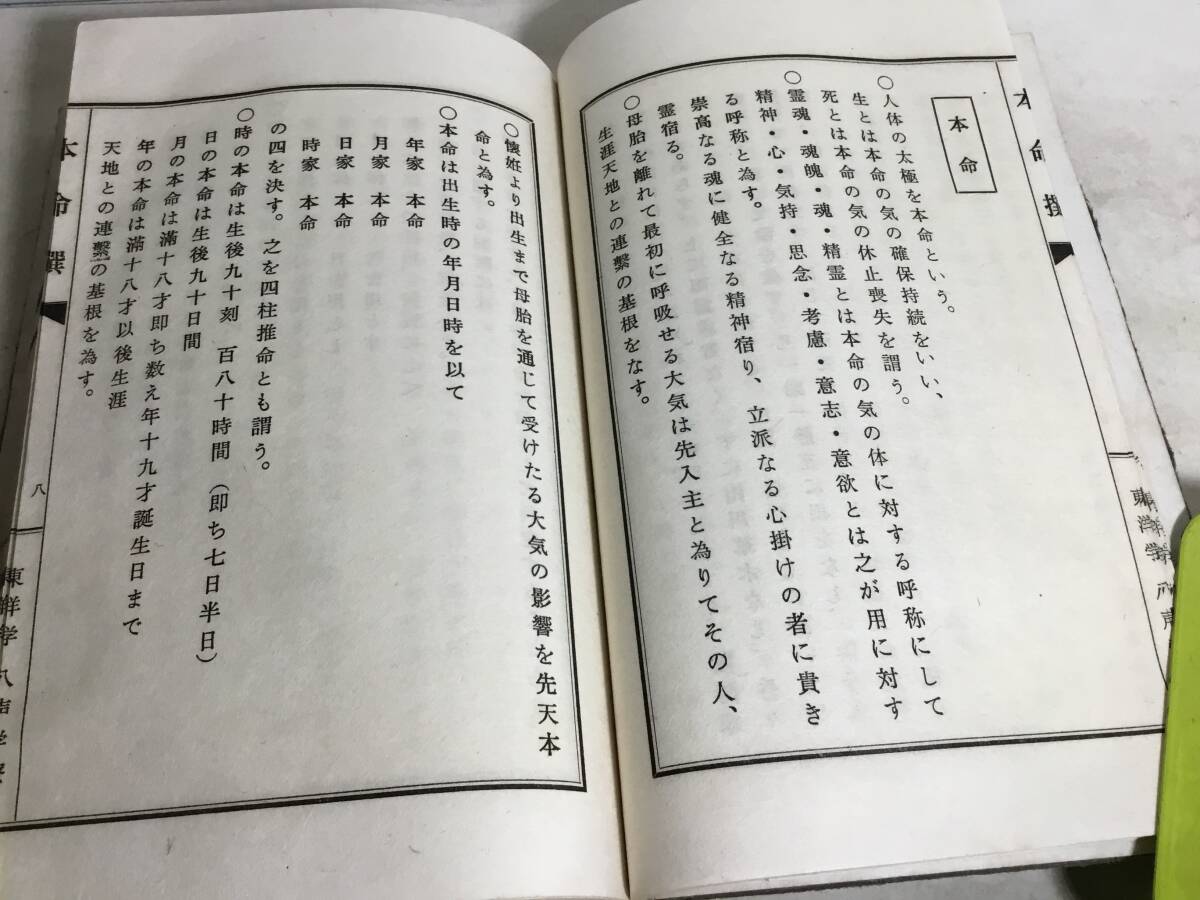 本命撰
本命
○人体の太極を本命という。
生とは本命の気の確保持続をいい、
死とは本命の気の休止喪失を謂う。
○霊魂・魂魄・魂・精霊とは本命の気の体に対する呼称にして
精神・心・気持・思念・考慮・意志・意欲とは之が用に対す
る呼称と為す。
崇高なる魂に健全なる精神宿り、立派なる心掛けの者に貴き
霊宿る。
○母胎を離れて最初に呼吸せる大気は先入主と為りてその人、
生涯天地との連繫の基根をなす。
東洋学
○懐妊より出生まで母胎を通じて受けたる大気の影響を先天本
命と為す。
○本命は出生時の年月日時を以て
年家 本命
月家 本命
日家 本命
時家 本命
の四を決す。之を四柱推命とも謂う。
○時の本命は生後九十刻 百八十時間(即ち七日半日)
日の本命は生後九十日間
月の本命は満十八才即ち数え年十九才誕生日まで
年の本命は満十八才以後生涯
天地との連繫の基根を為す。
本命撰
八
東洋学